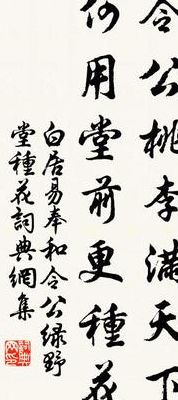 令公桃李滿天下
何用堂前更種花
白居易奉和令公綠野
堂種花詞典網集